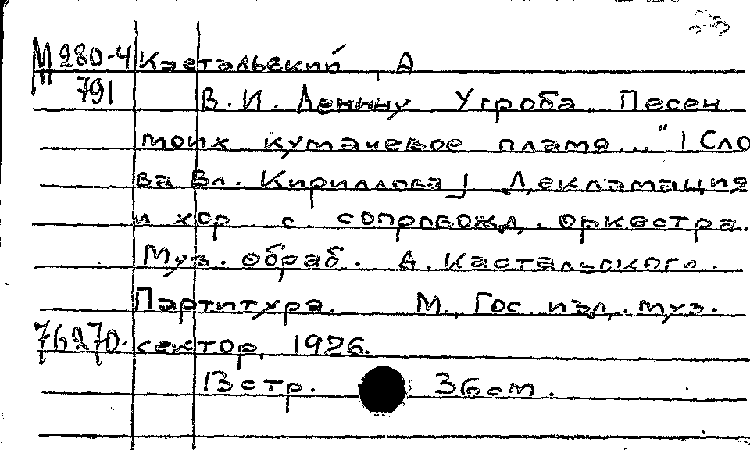 М 280-4 Кастальский, А
791 В. И. Ленину „У гроба Песен
моих кумачевое пламя..." / Сло
ва Вл. Кириллова / Декламация
и хор с сопровожд. оркестра.
Муз. обраб. А. Кастальского.
Партитура. М., Гос. изд. муз.
76270. сектор, 1926.
13 стр. 36 см.